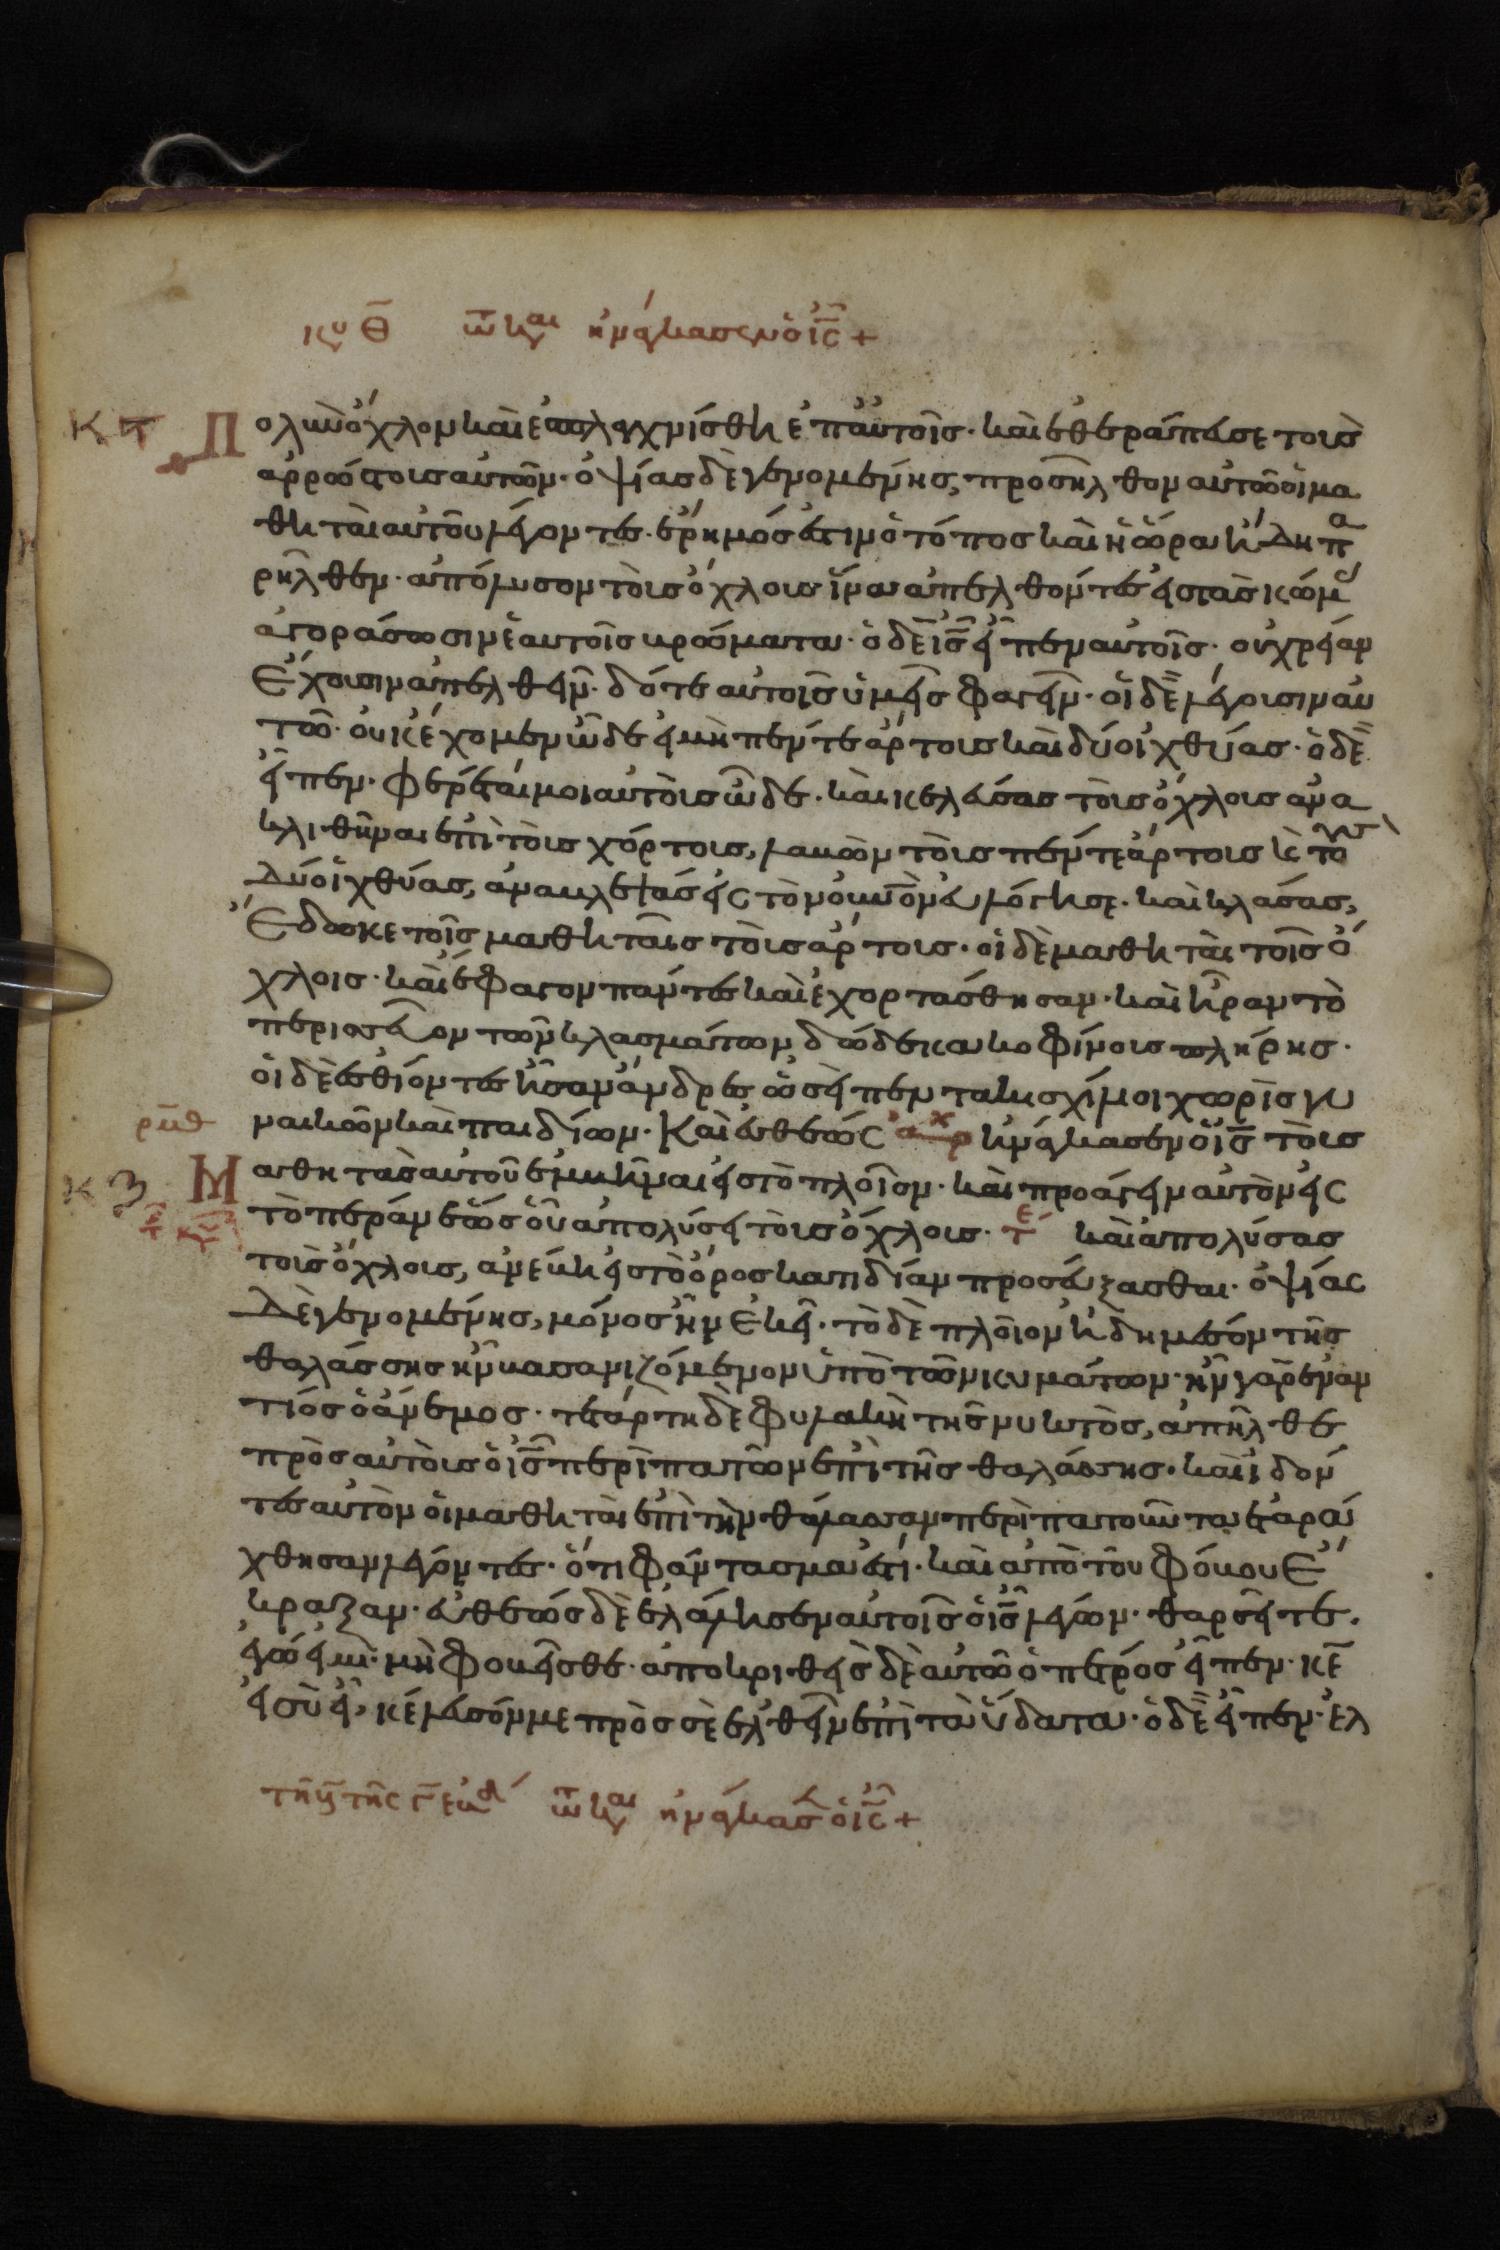 κυ θ τω και ηναγκασεν ὁ ις +
Πολὺν ὄχλον καὶ ἐσπλαγχνίσθη ἐπ αὐτοῖς· καὶ ἐθεράπευσε τοὺς
ἀρρώστους αὐτῶν· ὀψίας δὲ γενομένης, προσῆλθον αὐτῶ οἱ μα
θηταὶ αὐτοῦ λέγοντες· ἔρημός ἐστιν ὁ τόπος καὶ ἡ ὥρα ἤδη πα
ρῆλθεν· ἀπόλυσον τοὺς ὄχλους ἵνα ἀπελθόντες εἰς τὰς κώμ
ἀγοράσωσιν ἑαυτοῖς βρώματα· ὁ δὲ ις εἶπεν αὐτοῖς· οὐ χρείαν
ἔχουσιν ἀπελθεῖν· δότε αὐτοῖς ὑμεῖς φαγεῖν· οἱ δὲ λέγουσιν αὐ
τῶ· οὐκ ἔχομεν ὧδε εἰ μὴ πέντε ἄρτους καὶ δύο ἰχθύας· ὁ δὲ
εἶπεν· φέρεταί μοι αὐτοὺς ὧδε· καὶ κελεύσας τοὺς ὄχλους ἀνα
κλιθῆναι ἐπὶ τοὺς χόρτους, λαβὼν τοὺς πέντε ἄρτους κ τοὺς
δύο ἰχθύας, ἀναβλέψας εἰς τὸν οὐνὸν εὐλόγησε· καὶ κλάσας,
ἔδωκε τοῖς μαθηταῖς τοὺς ἄρτους· οἱ δὲ μαθηταὶ τοῖς ὄ
χλοις· καὶ ἔφαγον πάντες καὶ ἐχορτάσθησαν· καὶ ἦραν τὸ
περισσεῦον τῶν κλασμάτων δώδεκα κοφίνους πλήρης·
οἱ δὲ ἐσθίοντες ἦσαν ἄνδρες ὡσεὶ πεντακισχίλιοι χωρὶς γυ
ναικῶν καὶ παιδίων· Καὶ εὐθέως ἠνάγκασεν ὁ ις τοὺς
Μαθητὰς αὐτοῦ ἐμβῆναι εἰς τὸ πλοῖον· καὶ προάγειν αὐτὸν εἰς
τὸ πέραν ἕως οὗ ἀπολύσει τοὺς ὄχλους· τε καὶ ἀπολύσας
τοὺς ὄχλους, ἀνέβη εἰς τὸ ὄρος κατιδίαν προσεύξασθαι· ὀψίας
δὲ γενομένης, μόνος ἦν ἐκεῖ· τὸ δὲ πλοῖον ἤδη μέσον τῆς
θαλάσσης ἦν βασανιζόμενον ὑπὸ τῶν κυμάτων· ἦν γὰρ ἐναν
τιός ὁ ἄνεμος· τετάρτη δὲ φυλακὴ τῆς νυκτὸς, ἀπῆλθε
πρὸς αὐτοὺς ὁ ις περὶπατῶν ἐπὶ τῆς θαλάσσης· καὶ ἰδόν
τες αὐτὸν οἱ μαθηταὶ ἐπὶ τὴν θάλασσαν περὶπατοῦντα ἐταρά
χθησαν λέγοντες· ὅτι φάντασμα ἐστί· καὶ ἀπὸ τοῦ φόβου ἔ
κραξαν· εὐθέως δὲ ἐλάλησεν αὐτοῖς ὁ ις λέγων· θαρσεῖτε.
ἐγώ εἰμι· μὴ φοβεῖσθε· ἀποκριθεὶς δὲ αὐτῶ ὁ πέτρος εἶπεν· κε
εἰ σὺ εἶ, κέλευσόν με πρὸς σὲ ἐλθεῖν ἐπὶ τὰ ὕδατα· ὁ δὲ εἶπεν· ἐλ
τω και ηναγκασεν ὁ ις +